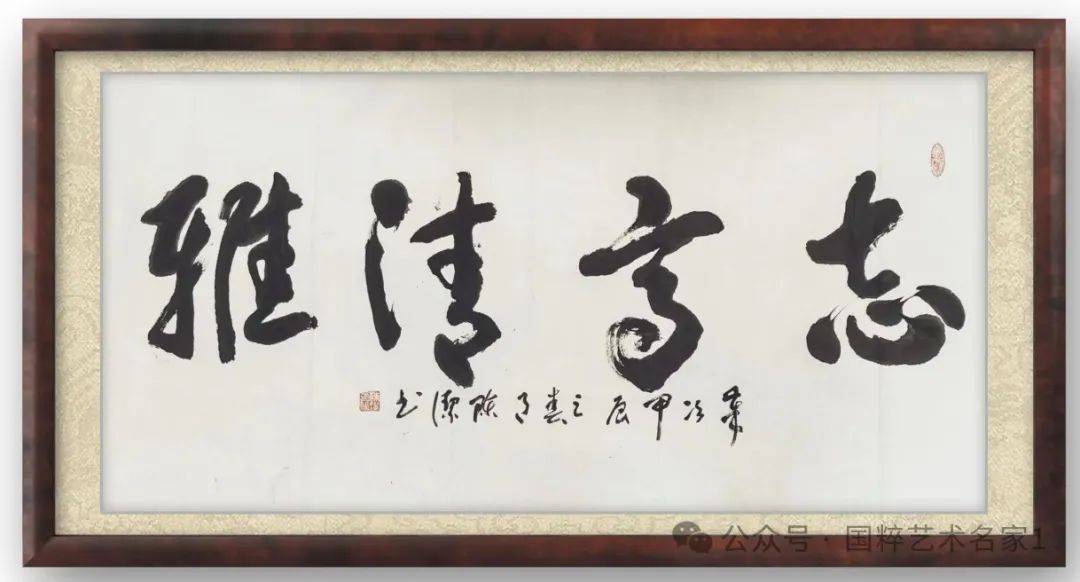 志高清雅
岁次甲辰之春月陈洁书
公众号·国粹艺术名家1